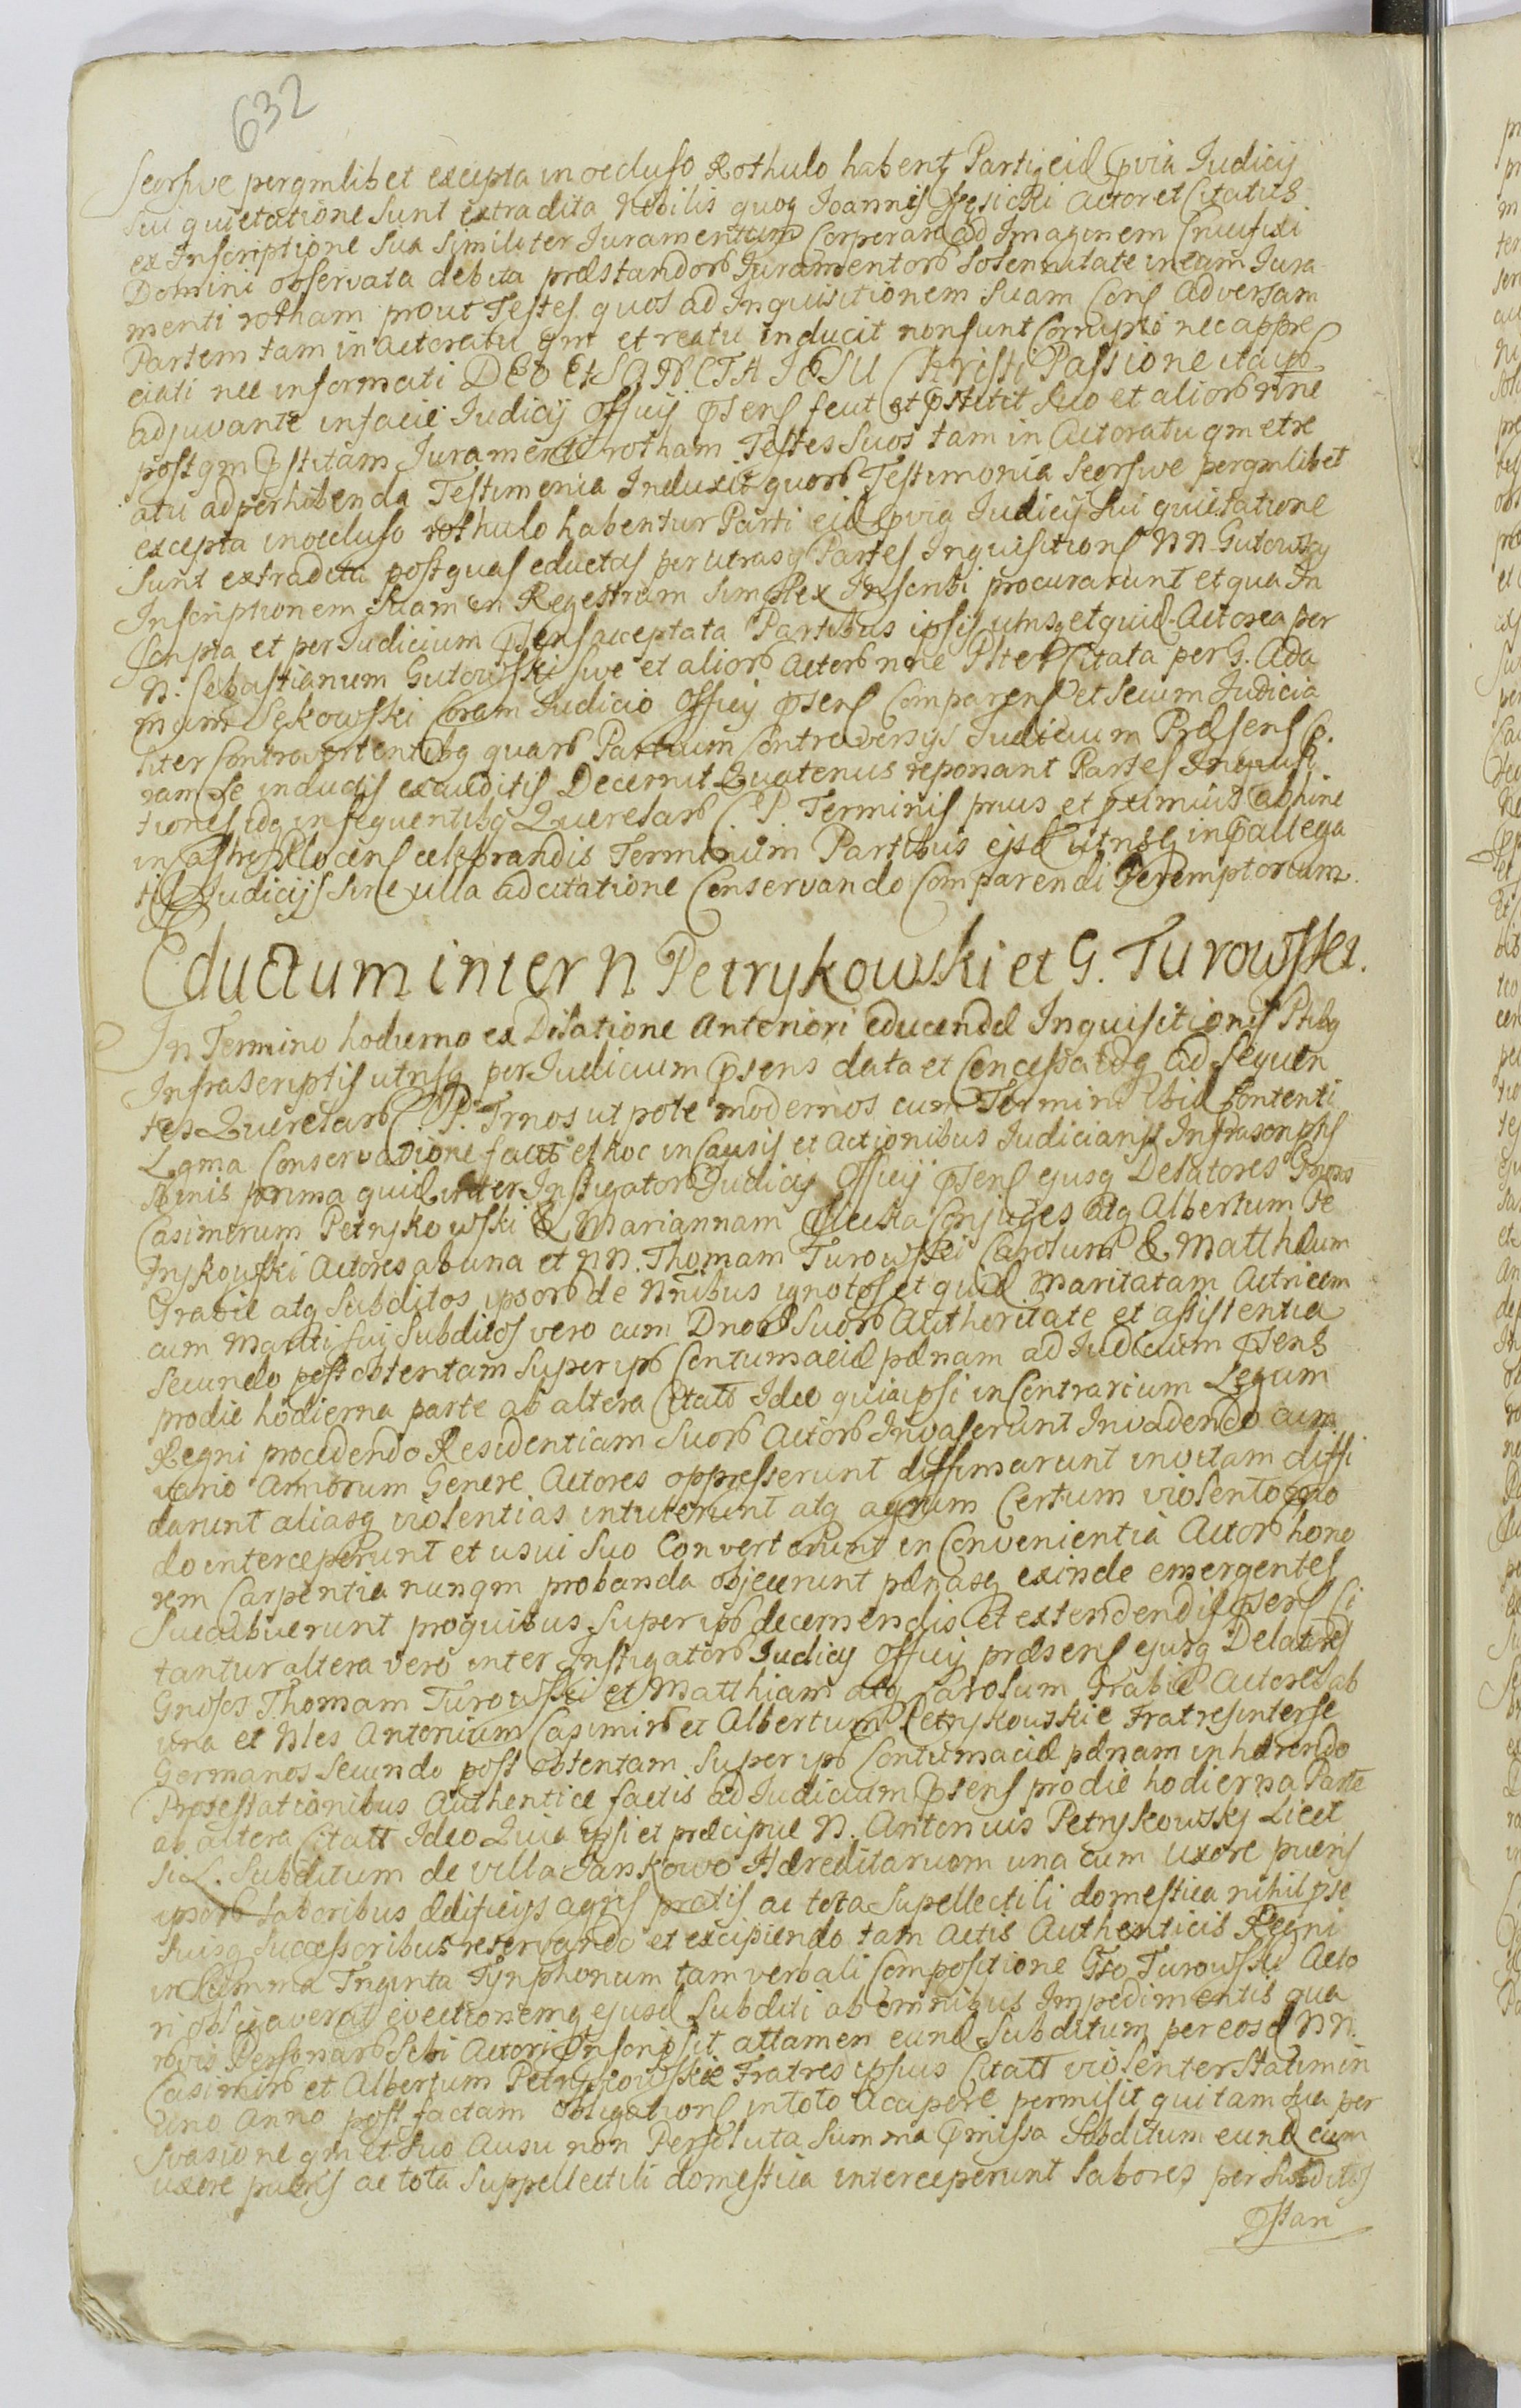 632
Seorsive pergmlibet excepta inocluso Rothulo habent Parti eid pvia Judicij
Sui quietatione sunt extradita Nobilis quoq Joannis Actor et Citatus
ex Inscriptione Sua Similiter Juramentum Corperare ad Imaginem Crucifixi
Domini observata debita præstandorb Juramentorb Solennitate in eam Jura
menti rotham prout Testes quos ad Inquisitionem Suam Cons Adversam
Partem tam in actoratu qm et reatu inducit non sunt Corrupti nec appre
ciati nec informati DEO Et SANCTA IESU Christi Passione ita ipb
adjuvante in facie Judicij Officij psens fecit et pstitit Suo et aliorb nne
post qm pstitam Juramenti rotham Testes Suos tam in Actoratu qm et re
atu ad perhibenda Testimonia Induxit quorb Testimonia Seorsive pergmlibet
excepta inocluso rothulo habentur Parti eid pvia Judicij Sui quietatione
Sunt extradita post quas eductas per utrasq Partes Inquisitions NN Gutowscy
Inscriptionem Suam in Regestrum Simplex Inscribi procurarunt et qua In
scripta et per Judicium psens acceptata Partibus ipsis utrisq et quid Actorea per
N. Sebastianum Gutowski Sive et aliorb Actorb nne Citata per G. Ada
mum Sękowski Coram Judicio Officij psens Comparens et Secum Judicia
liter Controvertentibq quarb Partium Controversijs Judicium Præsens Co
ram Se inductis exauditis Decernit Quatenus reponant Partes Inquisi
tiones idq in sequentibq Querelarb C. P. Terminis prius et proximius abhinc
in Castro celebrandis Terminum Partibus ejsd utrisq in pallega
tis Judicijs Sine ulla adcitatione Conservando Comparendi Peremptorium.
Eductum inter N Petrykowski et G. Turowski.
In Termino hodierno ex Dilatione Anteriori educendæ Inquisitionis Ptibq
Infrascriptis utrisq per Judicium psens data et Concessa idq ad Sequen
tes Querelarb C. P. Trnos ut pote modernos cum Termini Ibid Contenti
Lgma Conservatione facta et hoc in Causis et Actionibus Judicians Infrascriptis
binis prima quid inter Instigatorb Judicij Officij psens ejusq Delatores Gnros
Casimirum Petrykowski & Mariannam Conjuges atq Albertum Pe
trykowski Actores ab una et NN. Thomam Turowski Carolum & Matthæum
Grabie atq Subditos ipsorb de Nnibus ignotos et quid Maritatam Actricem
cum Mariti sui Subditos vero cum Dnorb Suorb Authoritate et assistentia
Secundo post obtentam Super ipb Contumaciæ pænam ad Judicium psens
prodie hodierna parte ab altera Citatb Ideo quia ipsi in Contrarium Legum
Regni procedendo Residentiam Suorb Actorb Invaserunt Invadendo cum
vario Armorum Genere Actores oppresserunt diffimarunt invitam diffi
darunt aliasq violentias intulerunt atq agrum Certum violento mo
do interceperunt et usui Suo Converterunt in Convenientia Actorb hono
rem Carpentia nunqm probanda objecerunt pænasq exinde emergentes
Succubuerunt proquibus Super ipb decernendis et extendendis psens Ci
tantur altera vero inter Instigatorb Judicij Officij præsens ejusq Delatores
Gnosos Thomam Turowski et Matthiam atq Carolum Grabie Actores ab
una et Nles Antonium Casimirb et Albertum Petrykowskie Fratres inter se
Germanos Secundo post obtentam Super ipb Contumaciæ pænam inhærendo
Protestationibus Authentice factis ad Judicium psens prodie hodierna Parte
ab altera Citatt Ideo Quia ipsi et præcipue N. Antonius Petrykowsky Licet
Subditum de villa Jankowo Hæreditarium una cum Uxore pueris
ipsorb laboribus ædificijs agris pratis ac tota Supellectili domestica nihil pse
Suisq Successoribus reservando et excipiendo tam Actis Authenticis Regni
in Summa Triginta Tynphonum tam verbali Compositione Gso Turowski Acto
ri obligaverat evectionemq ejusd Subditi ab omnibus Impedimentis qua
rbvis Personarb Sebi Actori Inscripsit attamen eund Subditum per eosd NN.
Casimirb et Albertum Petrykowskie Fratres ipsius Citatt violenter Statim in
Uno Anno post factam obligations in toto Accipere permisit qui tam sua per
Svasione qm et Suo Ausu non Persoluta Summa pmissa Subditum eund cum
uxore pueris ac tota Suppellectili domestica interceperunt labores per Subditos
pstari